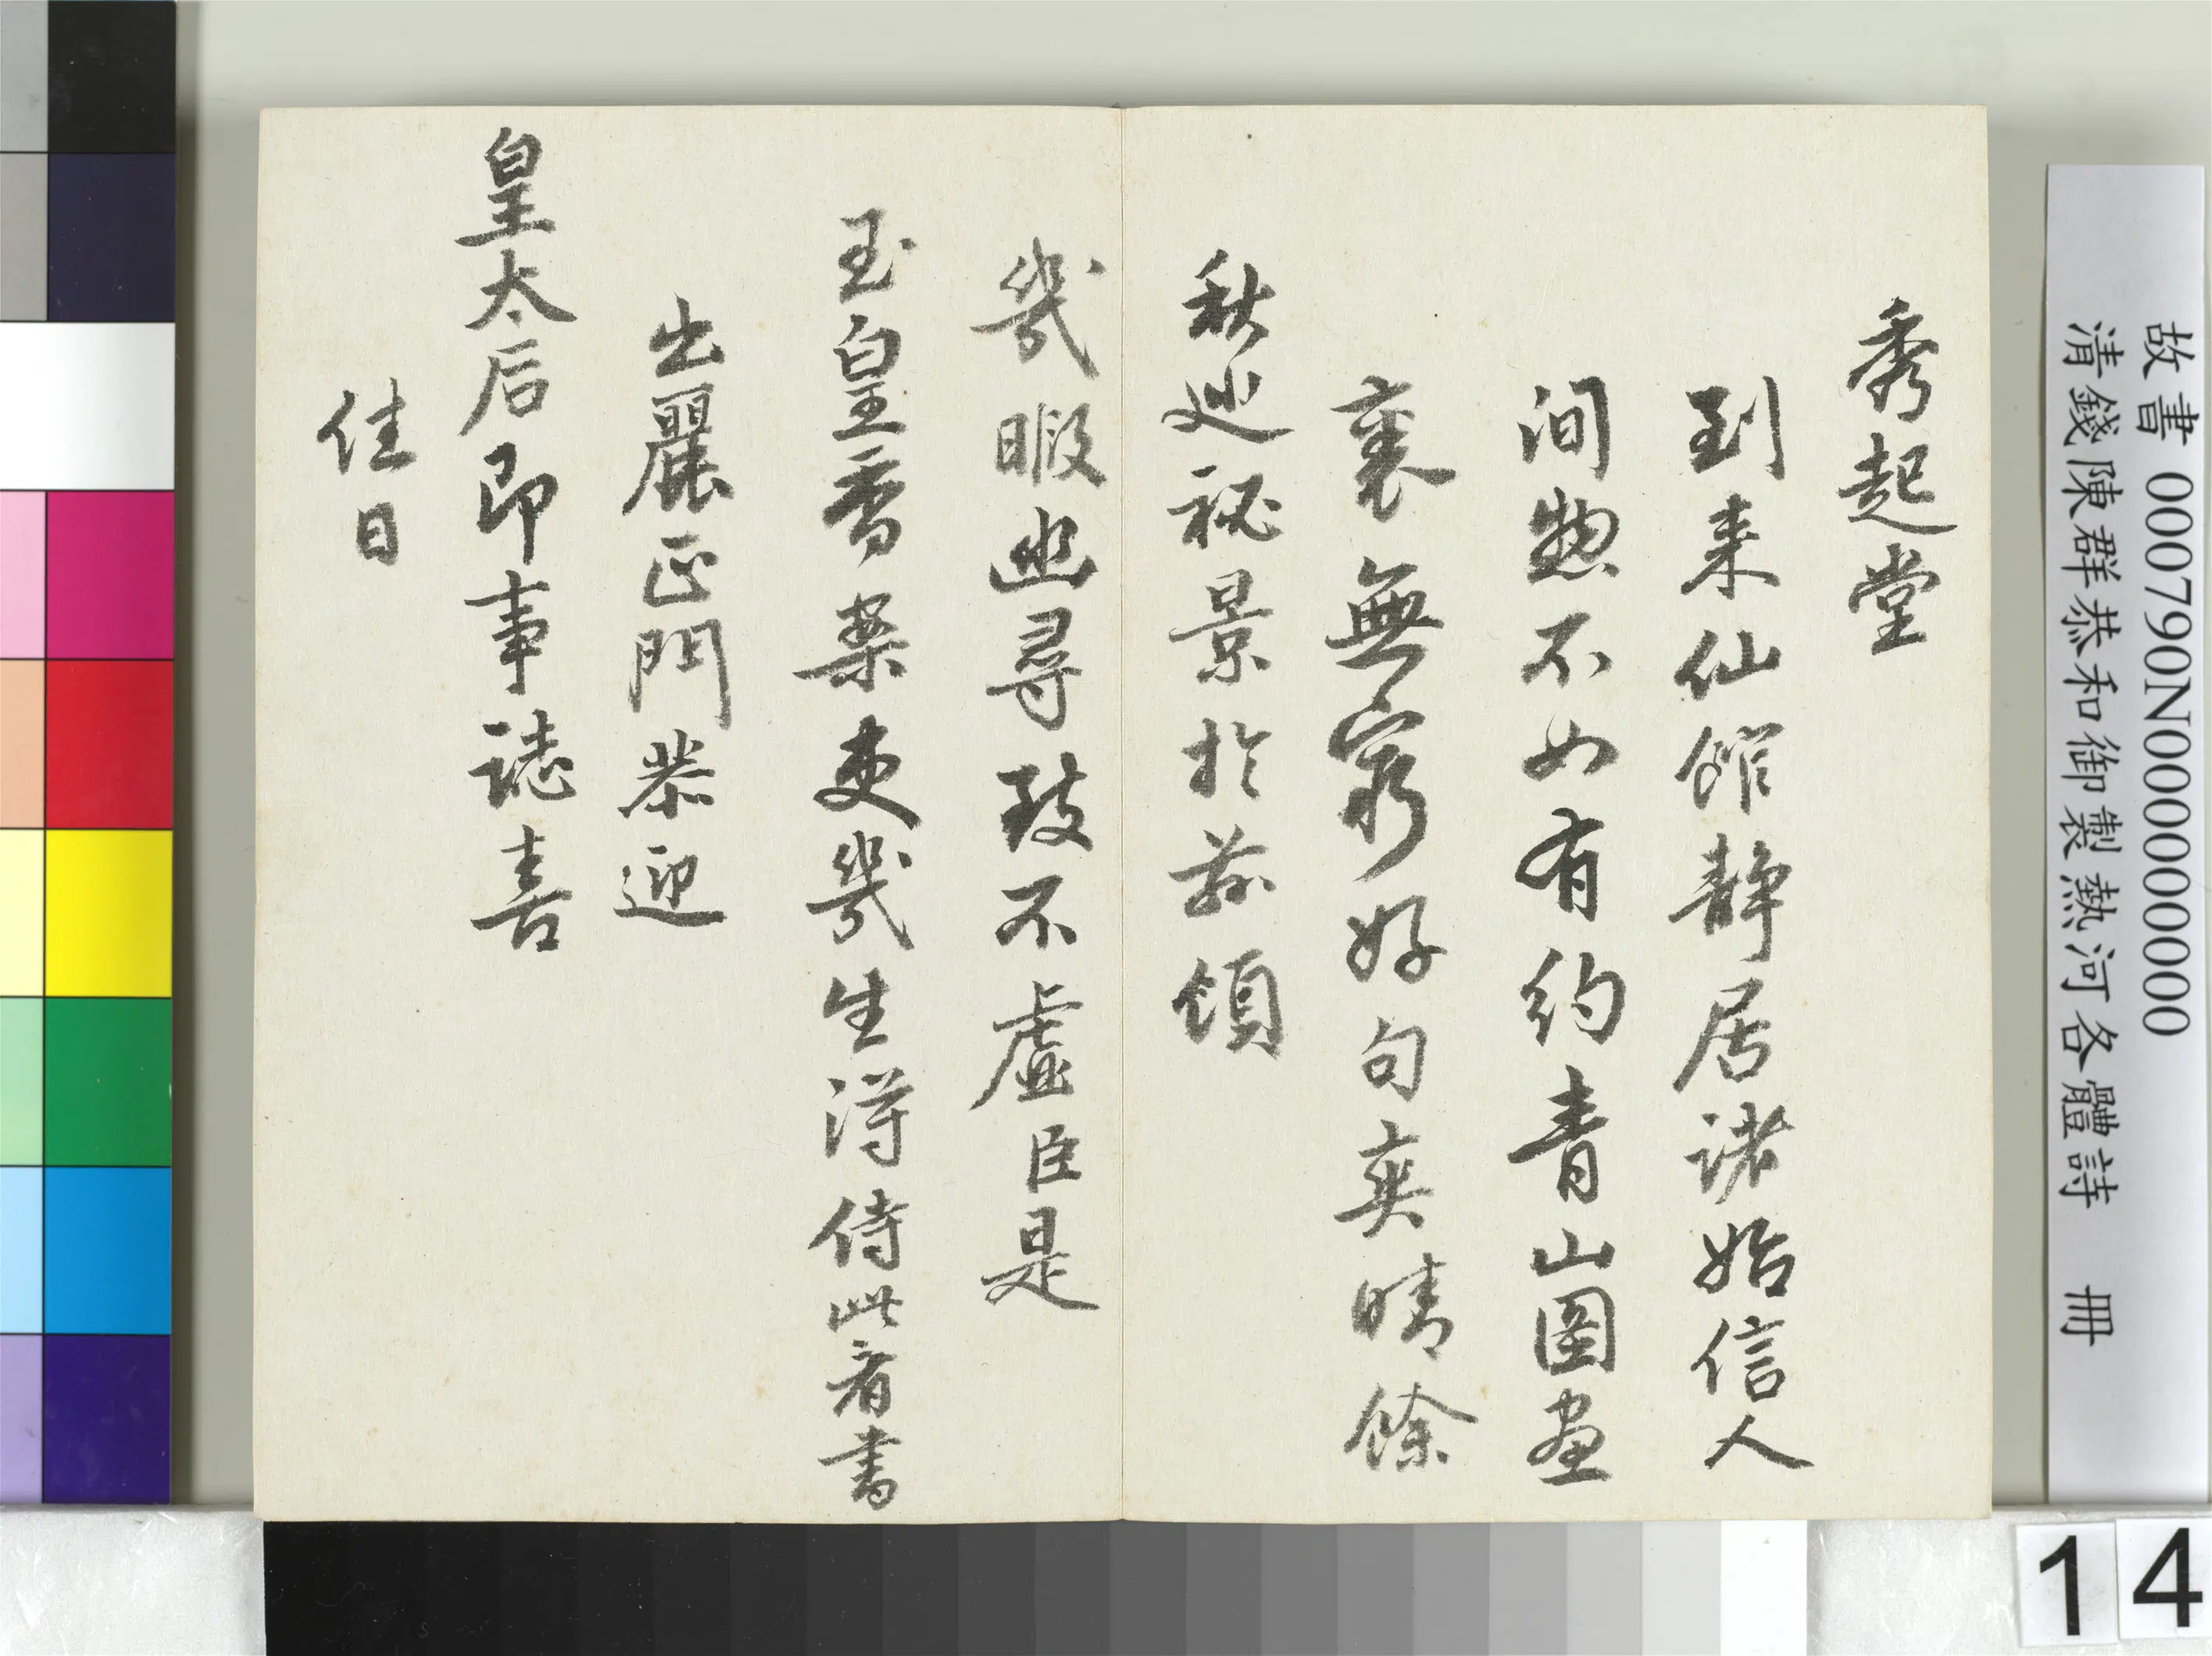 秀起堂
到来仙館静居諸始信人
间惣不如有約青山图畫
裏無窮好句奕晴餘
秋廵祕景於茲領
幾暇幽尋致不虛臣是
玉皇香案吏幾生淂侍此看書
出麗正門恭迎
皇太后即事誌喜
佳日
故書 000790N000000000
清錢陳群恭和御製熱河各體詩 冊
14